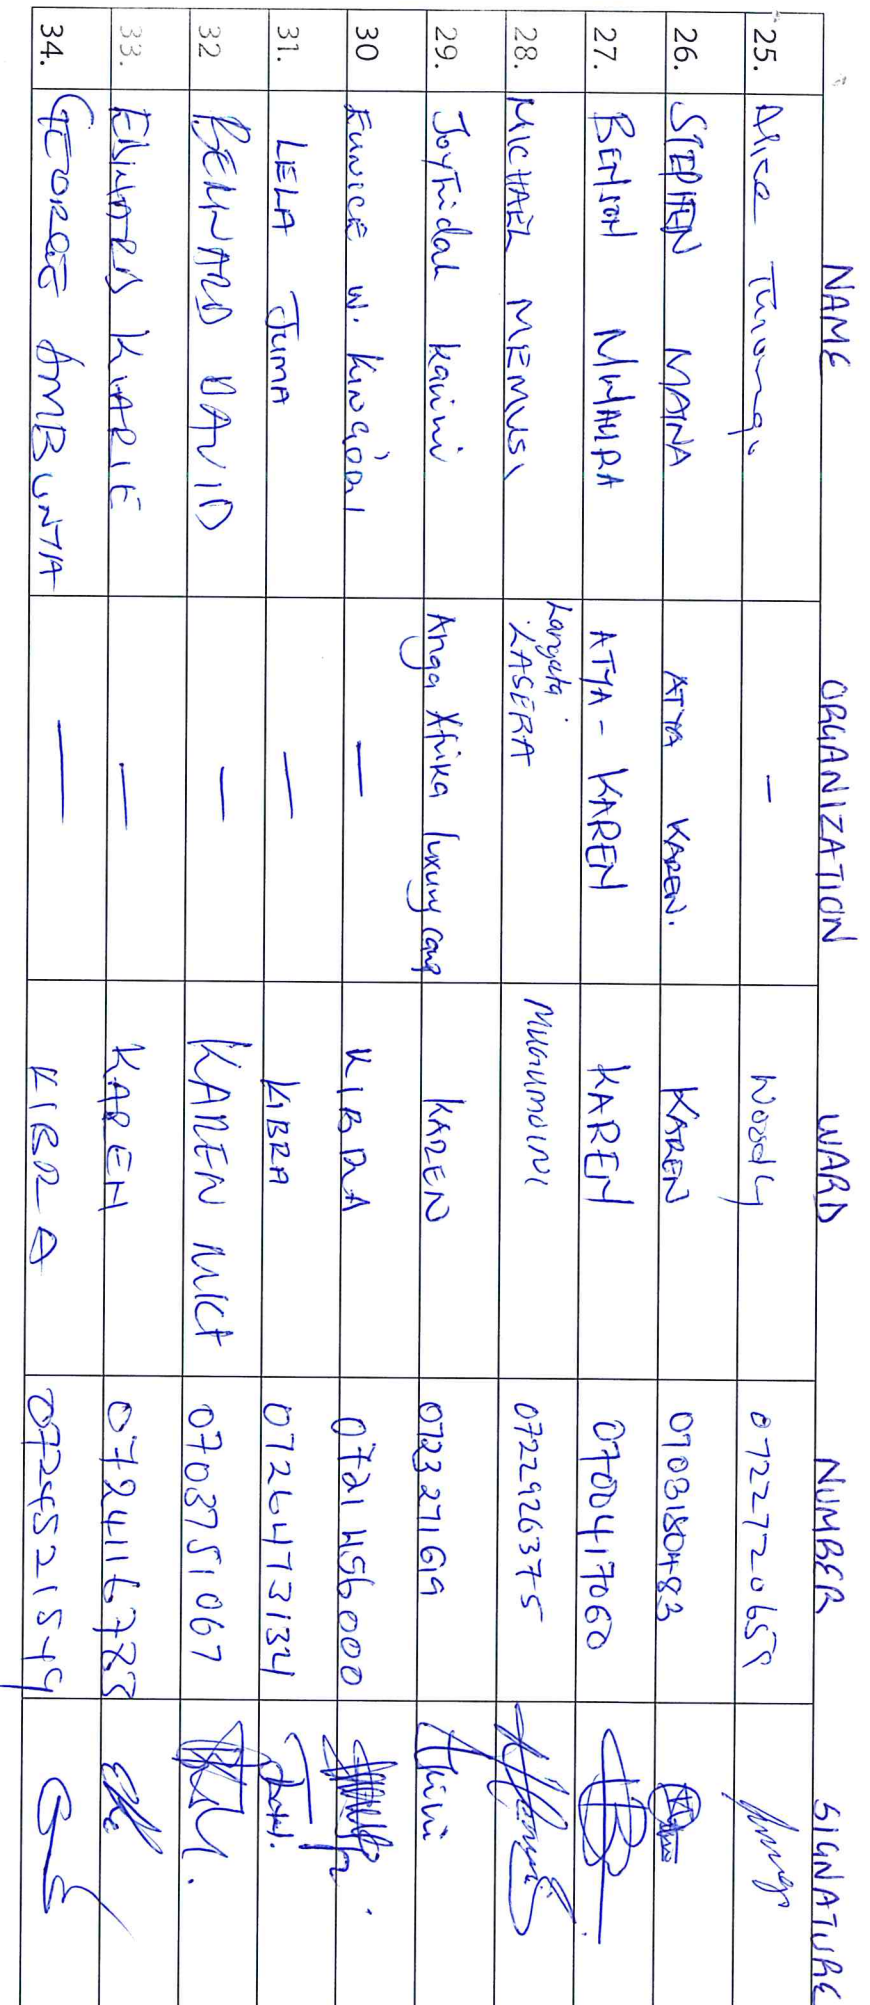 NAME ORGANIZATION WARD NUMBER SIGNATURE
25. Alice — Woodly 0722772065
26. STEPHEN MAINA ATYA KAREN. KAREN 0703180483
27. BENSON MWAURA ATYA - KAREN KAREN 0700417060
28. MICHAEL MEMUSI Langata LASERA MUGUMOINI 0722926375
29. Joyfridah Karimi Anga Afrika luxury camp KAREN 0723271619
30 EUNICE W. KINGÓORI — KIBRA 0721456000
31. LELA JUMA — KIBRA 0726473134
32 BERNARD DAVID — KAREN MKT 0703751067
33. EDWARD KIARIE — KAREN 0724116783
34. GEORGE AMBUNYA — KIBRA 0724521549